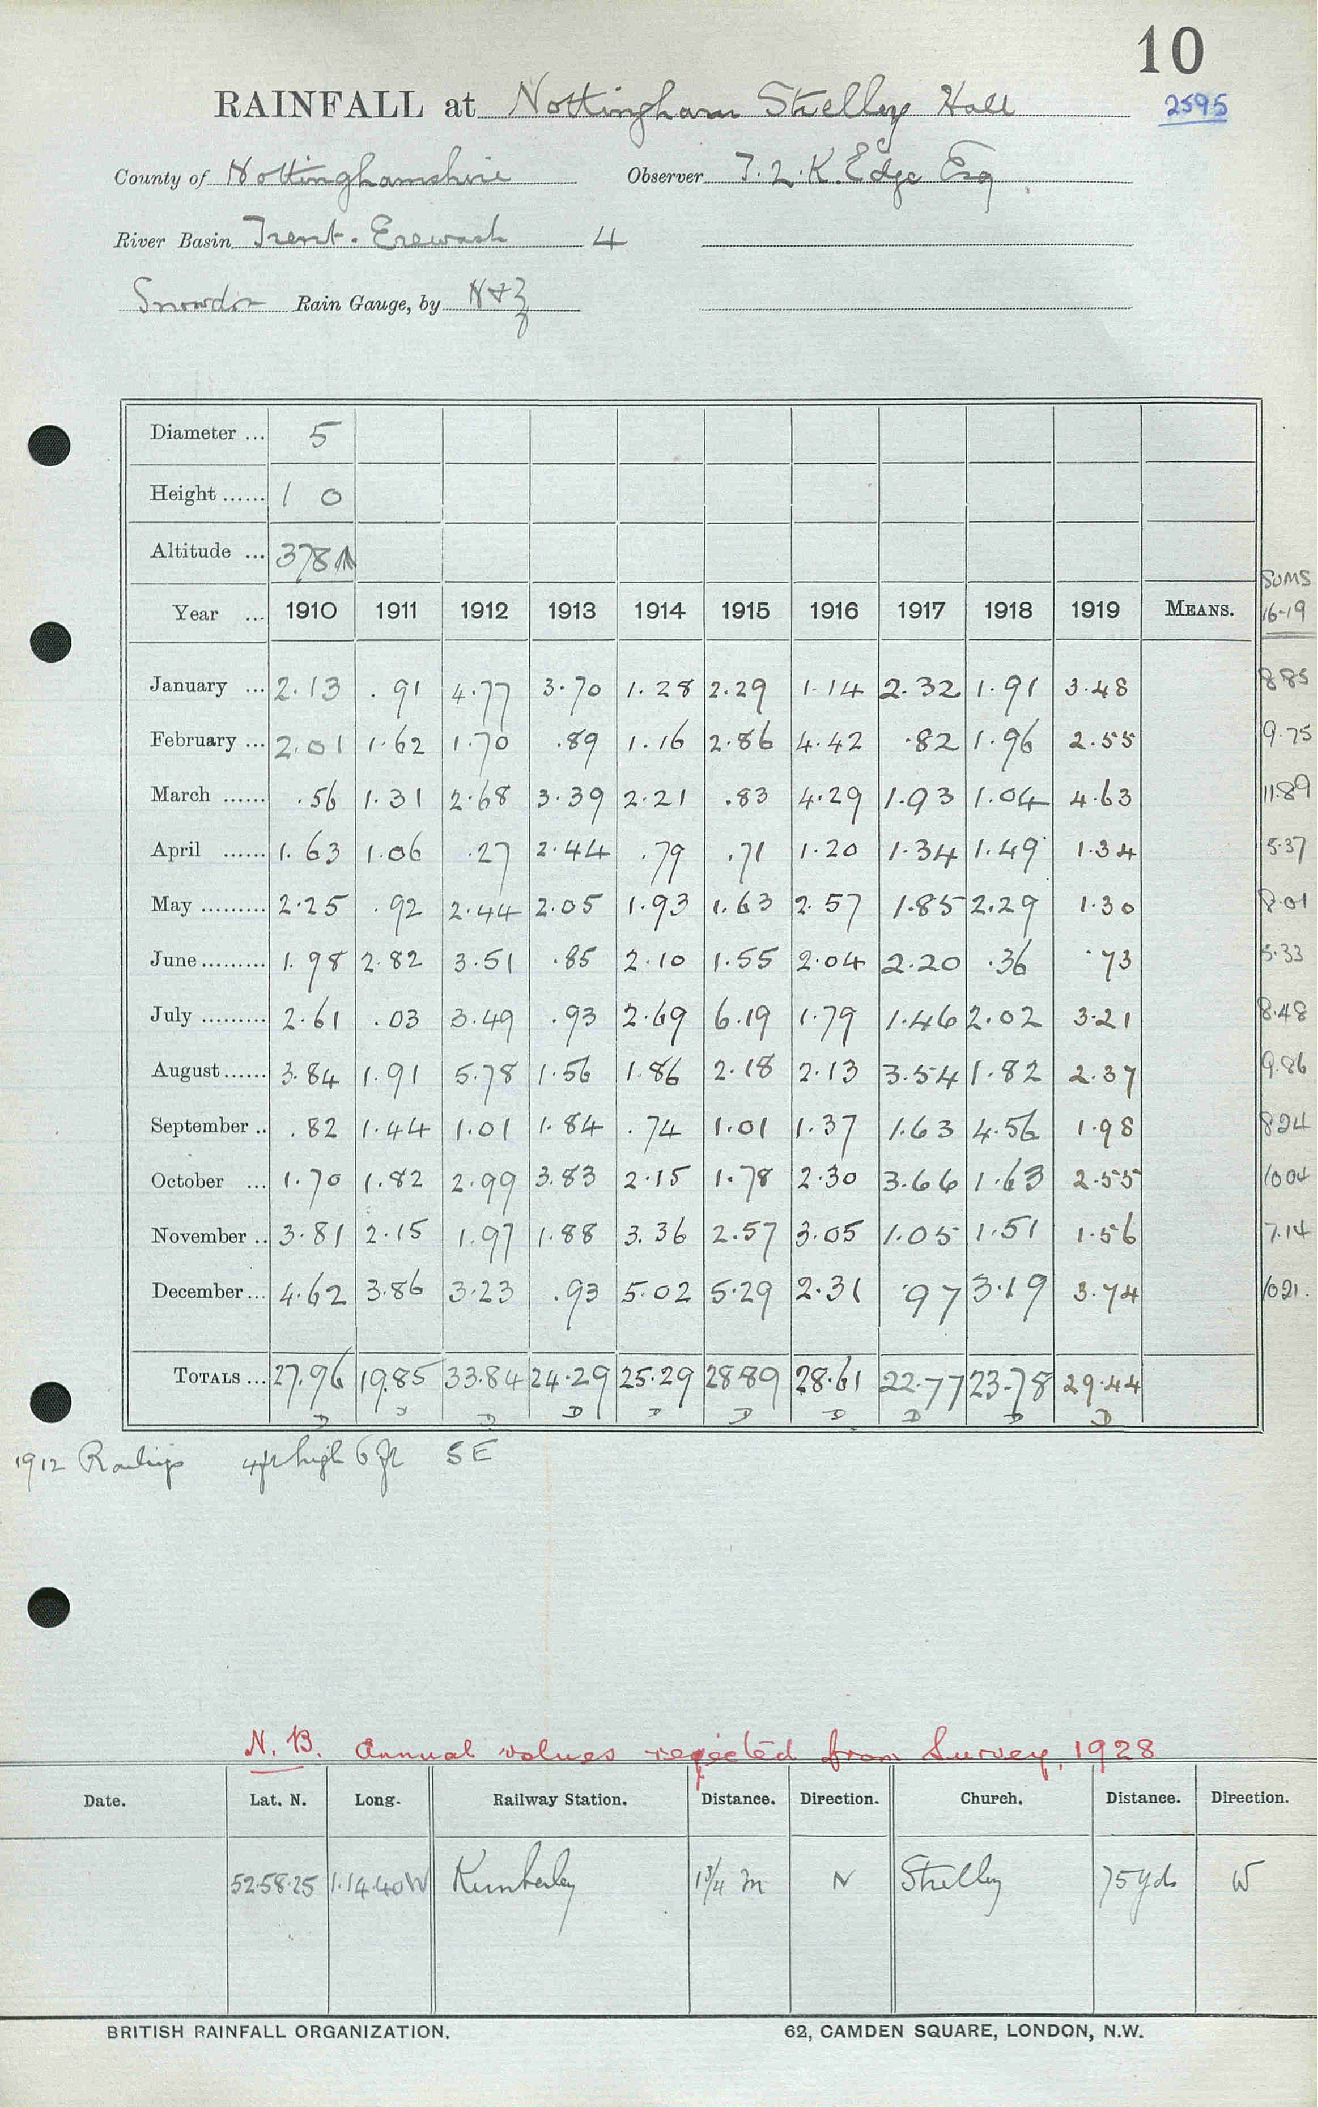 10
RAINFALL at Nottingham Strelley Hall 2595
County of Nottinghamshire Observer T. L. K. Edge Esq
River Basin Trent. Erewash 4
Snowdon Rain Gauge, by N & Z
Diameter ... 5
Height ...... 1 0
Altitude ... 378
SUMS
Year ... 1910 1911 1912 1913 1914 1915 1916 1917 1918 1919 MEANS. 16-19
January ... 2.13 .91 4.77 3.70 1.28 2.29 1.14 2.32 1.91 3.48 8.85
February ... 2.01 1.62 1.70 .89 1.16 2.86 4.42 .82 1.96 2.55 9.75
March ...... .56 1.31 2.68 3.39 2.21 .83 4.29 1.93 1.04 4.63 11.89
April ...... 1.63 1.06 .27 2.44 .79 .71 1.20 1.34 1.49 1.34 5.37
May ......... 2.25 .92 2.44 2.05 1.93 1.63 2.57 1.85 2.29 1.30 8.01
June ......... 1.98 2.82 3.51 .85 2.10 1.55 2.04 2.20 .36 .73 5.33
July ......... 2.61 .03 3.49 .93 2.69 6.19 1.79 1.46 2.02 3.21 8.48
August ...... 3.84 1.91 5.78 1.56 1.86 2.18 2.13 3.54 1.82 2.37 9.86
September .. .82 1.44 1.01 1.84 .74 1.01 1.37 1.63 4.56 1.98 8.24
October ... 1.70 1.82 2.99 3.83 2.15 1.78 2.30 3.66 1.63 2.55 10.04
November .. 3.81 2.15 1.97 1.88 3.36 2.57 3.05 1.05 1.51 1.56 7.14
December ... 4.62 3.86 3.23 .93 5.02 5.29 2.31 .97 3.19 3.74 10.21.
TOTALS ... 27.96 19.85 33.84 24.29 25.29 28.89 28.61 22.77 23.78 29.44
D D D D D D D D D D
1912 Railings 4ft high 6 ft SE
N.B. Annual values rejected from Survey, 1928
Date. Lat. N. Long. Railway Station. Distance. Direction. Church. Distance. Direction.
52.58.25 1.14.40W Kimberley 1 3/4 m N Strelley 75 yds W
BRITISH RAINFALL ORGANIZATION. 62, CAMDEN SQUARE, LONDON, N.W.